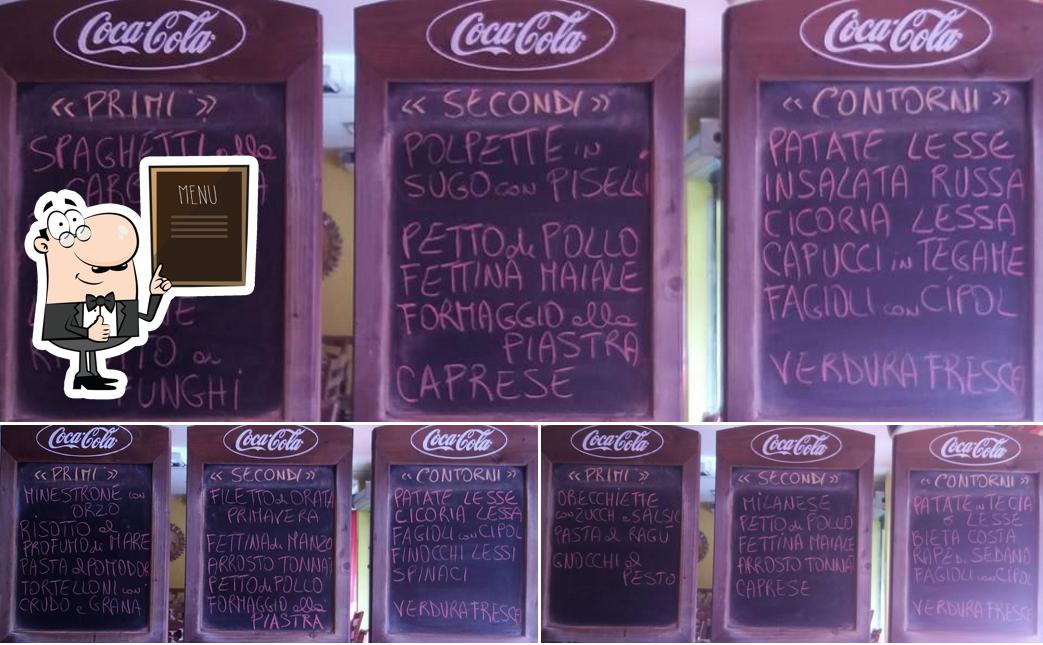 Coca-Cola
« PRIMI »
SPAGHETTI alla
FUNGHI
MENU
Coca-Cola
« SECONDI »
POLPETTE in
SUGO con PISELLI
PETTO di POLLO
FETTINA MAIALE
FORMAGGIO alla
PIASTRA
CAPRESE
Coca-Cola
« CONTORNI »
PATATE LESSE
INSALATA RUSSA
CICORIA LESSA
CAPUCCI in TEGAME
FAGIOLI con CIPOL
VERDURA FRESCA
Coca-Cola
« PRIMI »
MINESTRONE con
ORZO
RISOTTO al
PROFUMO di MARE
PASTA al POMODOR
TORTELLONI con
CRUDO e GRANA
Coca-Cola
« SECONDI »
FILETTO di ORATA
PRIMAVERA
FETTINA di MANZO
ARROSTO TONNAT
PETTO di POLLO
FORMAGGIO alla
PIASTRA
Coca-Cola
« CONTORNI »
PATATE LESSE
CICORIA LESSA
FAGIOLI con CIPOL
FINOCCHI LESSI
SPINACI
VERDURA FRESCA
Coca-Cola
« PRIMI »
ORECCHIETTE
con ZUCCH e SALSIC
PASTA al RAGU
GNOCCHI al
PESTO
Coca-Cola
« SECONDI »
MILANESE
PETTO di POLLO
FETTINA MAIALE
ARROSTO TONNAT
CAPRESE
Coca-Cola
« CONTORNI »
PATATE in TECIA
o LESSE
BIETA COSTA
RAPE di SEDANO
FAGIOLI con CIPOL
VERDURA FRESCA